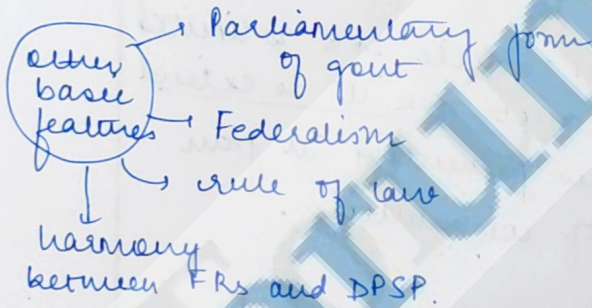 other
basic
features
Parliamentary form
of govt
Federalism
rule of law
harmony
between FRs and DPSP.